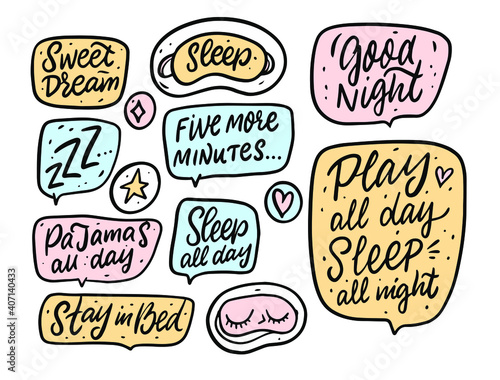 Sweet
Dream
Sleep
Good
Night
ZZZ...
Five more
minutes...
Play
all day
Sleep
all night
Pajamas
all day
Sleep
all day
Stay in Bed
Adobe Stock | #407140433